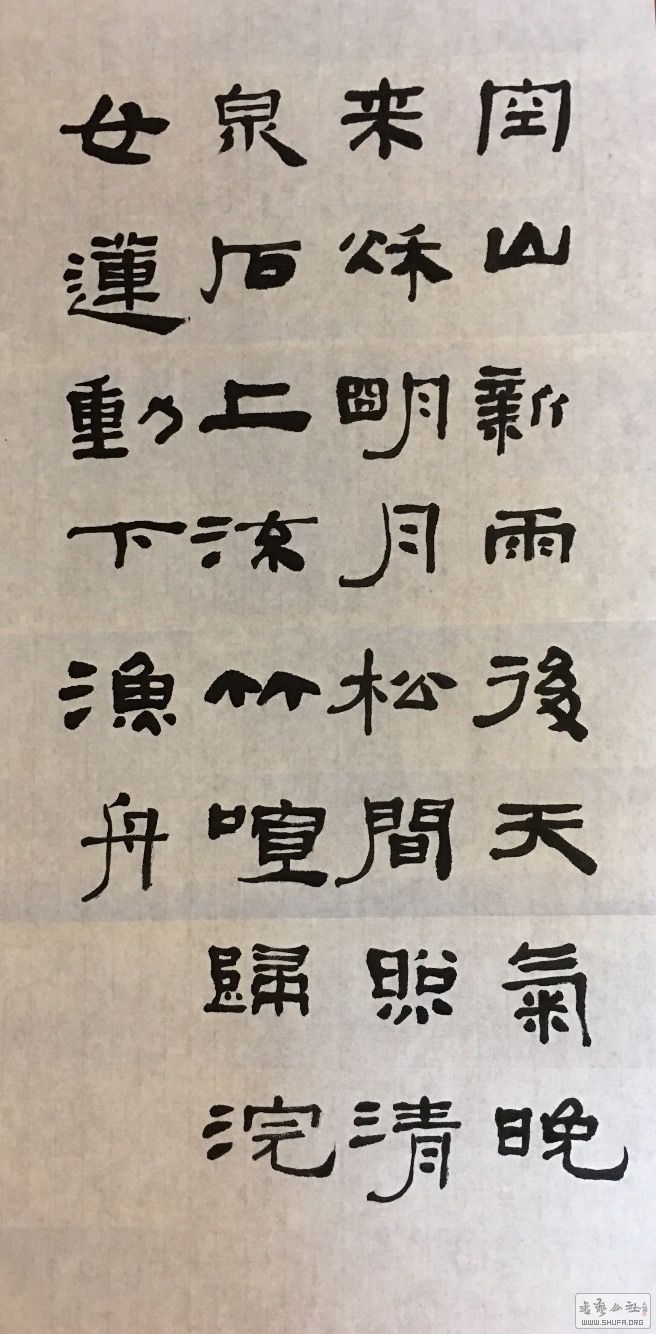 空山新雨後天氣晚
来秌朙月松間照清
泉石上流竹喧歸浣
女蓮動下漁舟
書藝公社
WWW.SHUFA.ORG